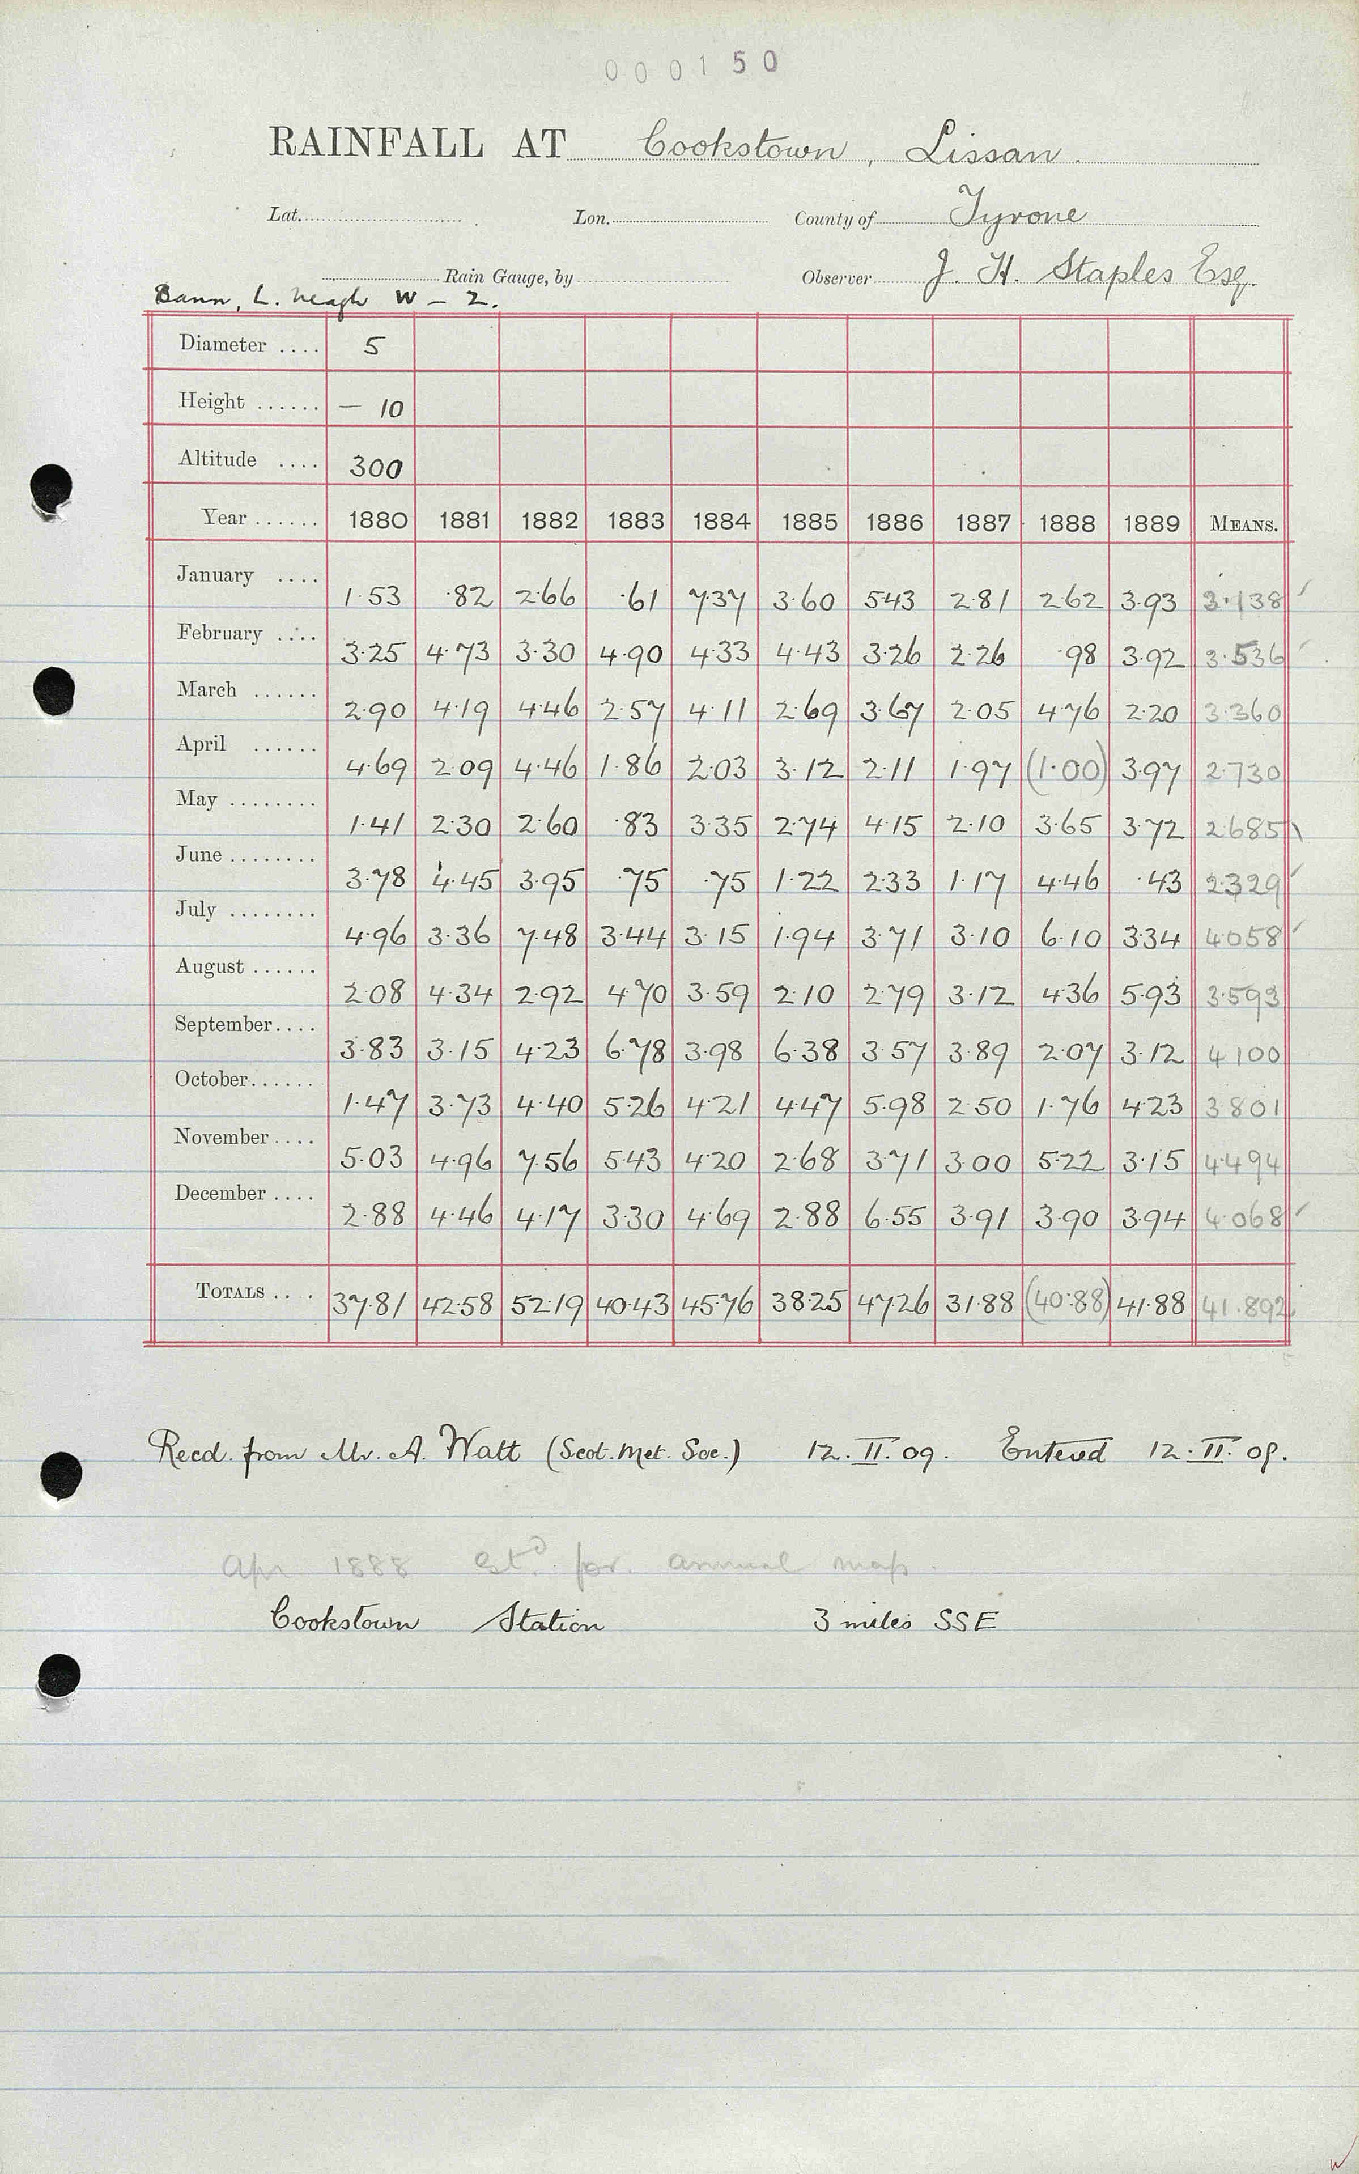 000150
RAINFALL AT Cookstown, Lissan.
Lat. Lon. County of Tyrone
Rain Gauge, by Observer J. H. Staples Esq.
Bann, L. Neagh W – 2.
Diameter .... 5
Height ...... – 10
Altitude .... 300
Year ...... 1880 1881 1882 1883 1884 1885 1886 1887 1888 1889 MEANS.
January .... 1.53 .82 2.66 .61 7.37 3.60 5.43 2.81 2.62 3.93 3.138
February .... 3.25 4.73 3.30 4.90 4.33 4.43 3.26 2.26 .98 3.92 3.536
March ...... 2.90 4.19 4.46 2.57 4.11 2.69 3.67 2.05 4.76 2.20 3.360
April ...... 4.69 2.09 4.46 1.86 2.03 3.12 2.11 1.97 (1.00) 3.97 2.730
May ........ 1.41 2.30 2.60 .83 3.35 2.74 4.15 2.10 3.65 3.72 2.685
June ........ 3.78 4.45 3.95 .75 .75 1.22 2.33 1.17 4.46 .43 2.329
July ........ 4.96 3.36 7.48 3.44 3.15 1.94 3.71 3.10 6.10 3.34 4.058
August ...... 2.08 4.34 2.92 4.70 3.59 2.10 2.79 3.12 4.36 5.93 3.593
September .... 3.83 3.15 4.23 6.78 3.98 6.38 3.57 3.89 2.07 3.12 4.100
October ...... 1.47 3.73 4.40 5.26 4.21 4.47 5.98 2.50 1.76 4.23 3.801
November .... 5.03 4.96 7.56 5.43 4.20 2.68 3.71 3.00 5.22 3.15 4.494
December .... 2.88 4.46 4.17 3.30 4.69 2.88 6.55 3.91 3.90 3.94 4.068
TOTALS .... 37.81 42.58 52.19 40.43 45.76 38.25 47.26 31.88 (40.88) 41.88 41.892
Recd. from Mr. A. Watt (Scot. Met. Soc.) 12.II.09. Entered 12.II.09.
Apr. 1888 estd. for annual map
Cookstown Station 3 miles SSE